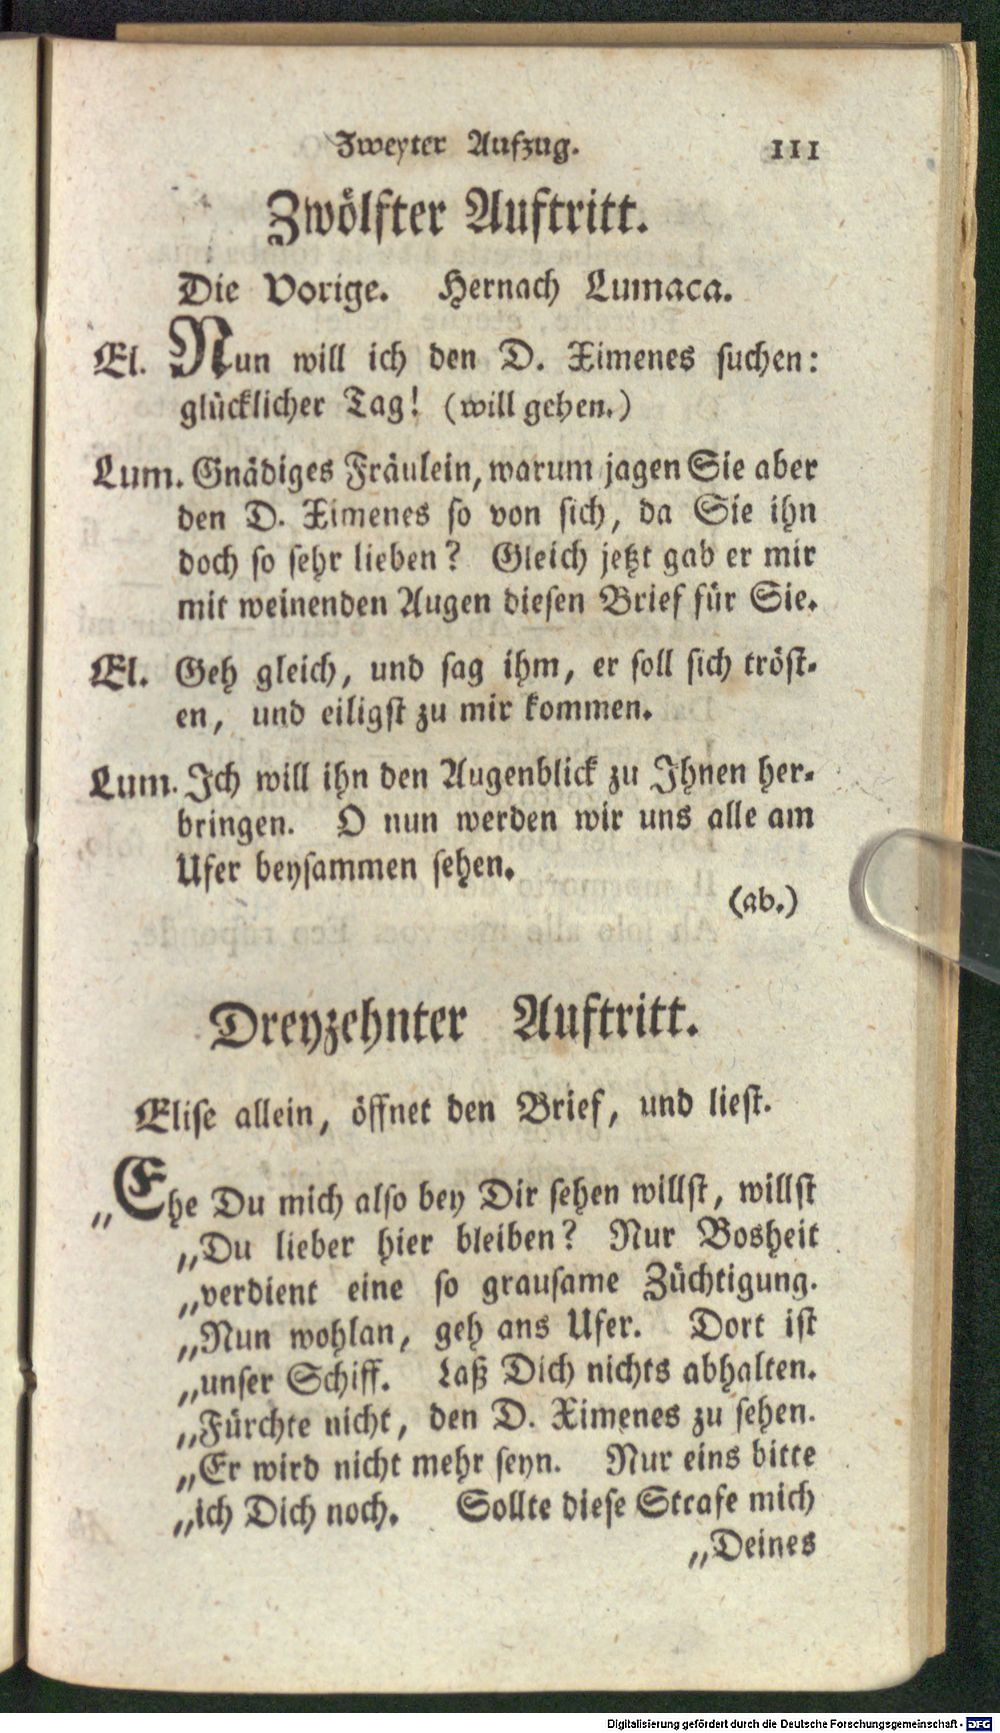 Zweyter Aufzug. 111
Zwölfter Auftritt.
Die Vorige. Hernach Lumaca.
El. Nun will ich den D. Ximenes suchen:
glücklicher Tag! (will gehen.)
Lum. Gnädiges Fräulein, warum jagen Sie aber
den D. Ximenes so von sich, da Sie ihn
doch so sehr lieben? Gleich jetzt gab er mir
mit weinenden Augen diesen Brief für Sie.
El. Geh gleich, und sag ihm, er soll sich tröst-
en, und eiligst zu mir kommen.
Lum. Ich will ihn den Augenblick zu Ihnen her-
bringen. O nun werden wir uns alle am
Ufer beysammen sehen.
(ab.)
Dreyzehnter Auftritt.
Elise allein, öffnet den Brief, und liest.
„Ehe Du mich also bey Dir sehen willst, willst
„Du lieber hier bleiben? Nur Bosheit
„verdient eine so grausame Züchtigung.
„Nun wohlan, geh ans Ufer. Dort ist
„unser Schiff. Laß Dich nichts abhalten.
„Fürchte nicht, den D. Ximenes zu sehen.
„Er wird nicht mehr seyn. Nur eins bitte
„ich Dich noch. Sollte diese Strafe mich
„Deines
Digitalisierung gefördert durch die Deutsche Forschungsgemeinschaft - DFG